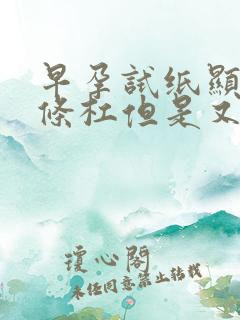 早孕試纸顯
條杠但是又
瓊心閣
未经同意禁止转载